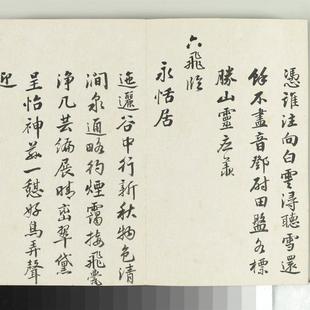 憑誰注向白雲潯聽雪還
餘不盡音鄧尉田盤名標
勝山靈應羨
六飛臨
永恬居
迤邐谷中行新秋物色清
澗泉通略彴煙靄接飛甍
淨几芸編展晴巒翠黛
呈怡神茲一憩好鳥弄聲
迎